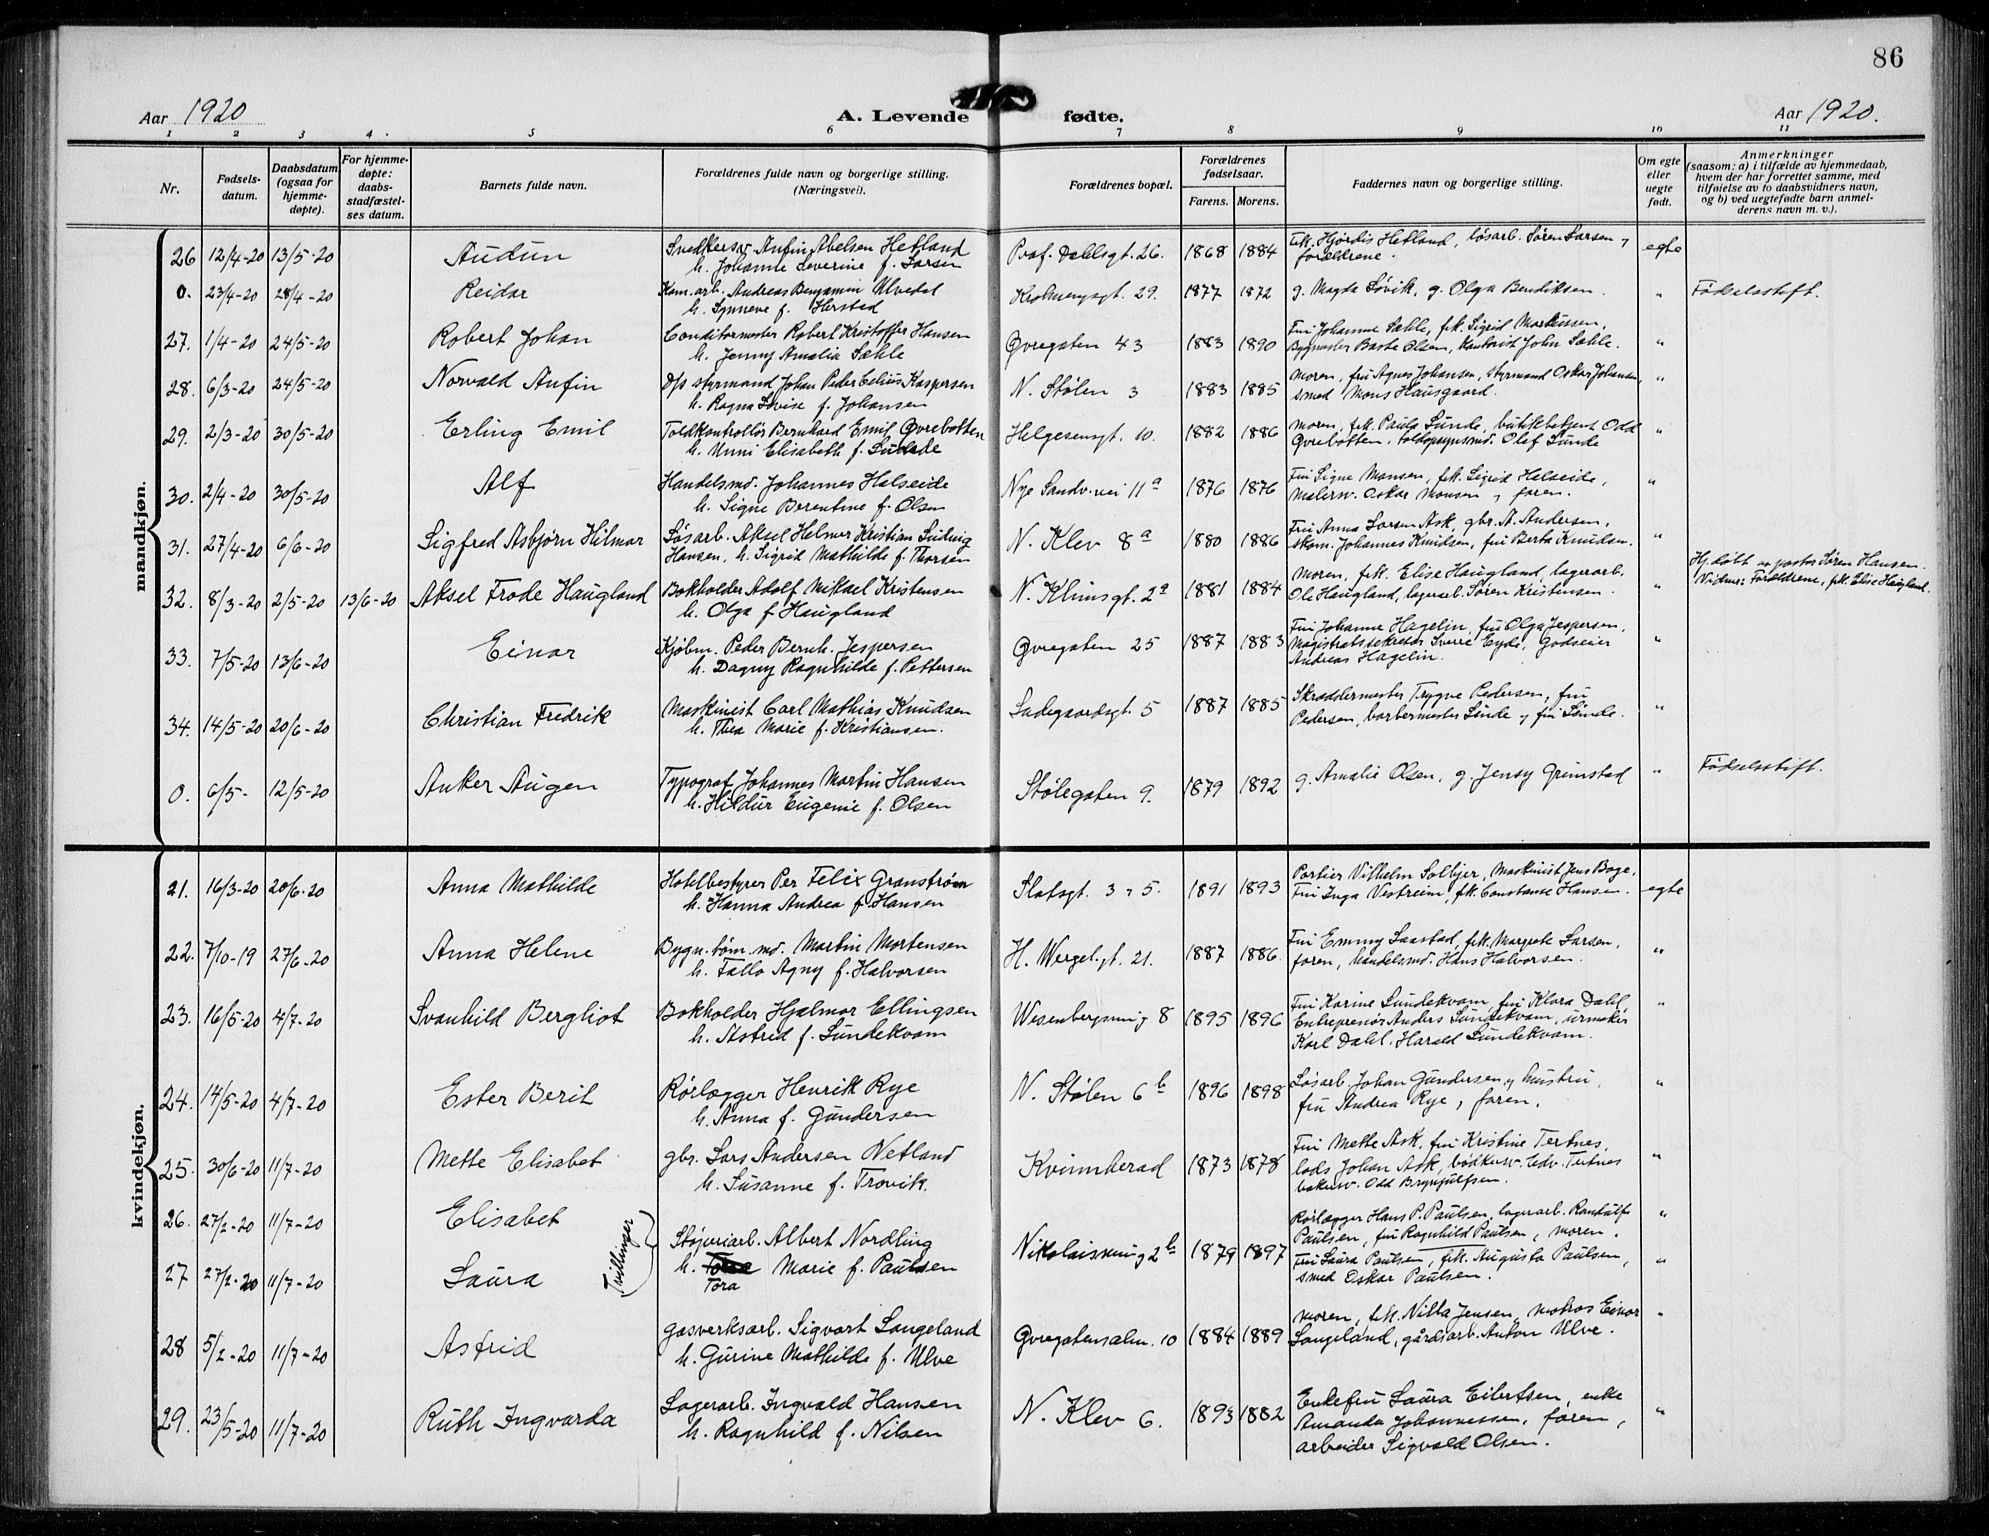 86
Aar 1920
A. Levende fødte.
Aar 1920.
1 2 3 4 5 6 7 8 9 10 11
Nr.
Fødsels-
datum.
Daabsdatum
(ogsaa for
hjemme-
døpte).
For hjemme-
døpte:
daabs-
stadfæstel-
ses datum.
Barnets fulde navn.
Forældrenes fulde navn og borgerlige stilling.
(Næringsvei).
Forældrenes bopæl.
Forældrenes
fødselsaar.
Farens. Morens.
Faddernes navn og borgerlige stilling.
Om egte
eller
uegte
født.
Anmerkninger
(saasom: a) i tilfælde av hjemmedaab,
hvem der har forrettet samme, med
tilføielse av to daabsvidners navn,
og b) ved uegtefødte barn anmel-
derens navn m. v.).
mandkjøn.
26 12/4-20 13/5-20 Audun
Snedkersv. Anfin Abelsen Hetland
h. Johanne Severine f. Larsen
Prof. Dahlsgt. 26. 1868 1884
Frk. Hjørdis Hetland, løsarb. Søren Larsen,
forældrene.
egte
0. 23/4-20 28/4-20 Reidar
Kom. arb. Andreas Benjamin Ulvedal
h. Synneve f. Herstad
Krohnengsgt. 29. 1877 1872
g. Magda Løvik, g. Olga Bendiksen.
" Fødselsstift.
27. 1/4-20 24/5-20 Robert Johan
Conditormester Robert Kristoffer Hansen
h. Jenny Amalia Sæhle
Øvregaten 43 1883 1890
Fru Johanne Sæhle, frk. Sigrid Markussen,
Bygmester Baste Olsen, Kontorist John Sæhle.
"
28. 6/3-20 24/5-20 Norvald Anfin
D/s styrmand Johan Peder Celius Kaspersen
h. Ragna Lovise f. Johansen
N. Stølen 3 1883 1885
Moren, fru Agnes Johansen, styrmand Oskar Johansen,
smed Mons Hausgaard.
"
29. 2/3-20 30/5-20 Erling Emil
Toldkontrollør Bernhard Emil Øvrebotten
h. Unni Elisabeth f. Sunde
Helgesensgt. 10. 1882 1886
Moren, frk. Paula Sunde, butikbetjent Odd
Øvrebotten, toldopsynsmd. Olaf Sunde
"
30. 2/4-20 30/5-20 Alf
Handelsmd. Johannes Halseide
h. Signe Berentine f. Olsen
Nye Sandv. vei 11a 1876 1876
Fru Signe Monsen, frk. Sigrid Halseide,
Malersv. Oskar Monsen, faren.
"
31. 27/4-20 6/6-20 Sigfred Asbjørn Hilmar
Løsarb. Aksel Helmer Kristian Ludvig
Hansen, h. Sigrid Mathilde f. Thorsen
N. Klev 8a 1880 1886
Fru Anna Larsen Ask, gbr. A. Andersen,
skom. Johannes Knudsen, fru Berta Knudsen.
"
32. 8/3-20 2/5-20 13/6-20 Aksel Frode Haugland
Bokholder Adolf Mikael Kristensen
h. Olga f. Haugland
N. Klinisgt. 2a 1881 1884
Moren, frk. Elise Haugland, lagerarb.
Ole Haugland, lagerarb. Søren Kristensen.
"
Hj. døbt av pastor Søren Hansen.
Vidner: Forældrene, frk. Elise Haugland.
33. 7/5-20 13/6-20 Einar
Kjøbm. Peder Bernh. Jespersen
h. Dagny Ragnhilde f. Pettersen
Øvregaten 25 1887 1883
Fru Johanne Hagelin, fru Olga Jespersen,
Magistratssekretær Sverre Eyde, Godseier
Andreas Hagelin.
"
34. 14/5-20 20/6-20 Christian Fredrik
Maskinist Carl Mathias Knudsen
h. Thea Marie f. Kristiansen.
Ladegaardsgt. 5 1887 1885
Skræddermester Trygve Pedersen, fru
Pedersen, barbermester Sunde og fru Sunde.
"
0. 6/5- 12/5-20 Anker Augen
Typograf Johannes Martin Hansen
h. Hildur Eugenie f. Olsen
Stølegaten 9. 1879 1892
g. Amalie Olsen, g. Jensy Grimstad
" Fødselsstift.
kvindekjøn.
21. 16/3-20 20/6-20 Anna Mathilde
Hotelbestyrer Per Felix Granstrøm
h. Hanna Andrea f. Hansen
Slotsgt. 3 & 5. 1891 1893
Portier Vilhelm Solbjer, Maskinist Jens Bage,
Fru Inga Vestreim, frk. Constanse Hansen.
egte
22. 7/10-19 27/6-20 Anna Helene
Bygn. tøm. md. Martin Mortensen
h. Tallo Agny f. Halvorsen
H. Wergel. gt. 21. 1887 1886.
Fru Emmy Saastad, frk. Margrete Larsen,
faren, handelsmd. Hans Halvorsen.
"
23. 16/5-20 4/7-20 Svanhild Bergliot
Bokholder Hjalmar Ellingsen
h. Astrid f. Sundekvam
Wesenbergsmug 8 1895 1896
Fru Karine Sundekvam, fru Klara Dahl,
Entreprenør Anders Sundekvam, urmaker
Karl Dahl, Harald Sundekvam.
"
24. 14/5-20 4/7-20 Ester Berit
Rørlægger Henrik Rye
h. Anna f. Gundersen
N. Stølen 6b 1896 1898
Løsarb. Johan Gundersen og hustru,
fru Andrea Rye, faren.
"
25. 30/6-20 11/7-20 Mette Elisabet
gbr. Lars Andersen Netland
h. Susanne f. Trovik.
Kvinnherad 1873 1878
Fru Mette Ask, fru Kristine Tertnes,
lods Johan Ask, bødkersv. Edv. Tertnes
bakersv. Odd Brynjulfsen.
"
26. 27/2-20 11/7-20 Elisabet
27 27/2-20 11/7-20 Laura
Tvillinger
Støperiarb. Albert Nordling
h. Tora Marie f. Paulsen
Tora
Nikolaismug 2b 1879 1897
Rørlægger Hans P. Paulsen, lagerarb. Randulf
Paulsen, fru Ragnhild Paulsen, moren.
"
Fru Laura Paulsen, frk. Augusta Paulsen,
smed Oskar Paulsen.
"
28 5/2-20 11/7-20 Astrid
Gasverksarb. Sigvart Langeland
h. Gurine Mathilde f. Ulve
Øvregatensalm. 10 1884 1889
Moren, frk. Nilla Jensen, matros Einar
Langeland, gårdsarb. Anton Ulve.
"
29. 23/5-20 11/7-20 Ruth Ingvarda
Lagerarb. Ingvald Hansen
h. Ragnhild f. Nilsen
N. Klev 6. 1893 1882
Enkefru Laura Eilertsen, enke
Amanda Johannessen, faren,
arbeider Sigvald Olsen.
"